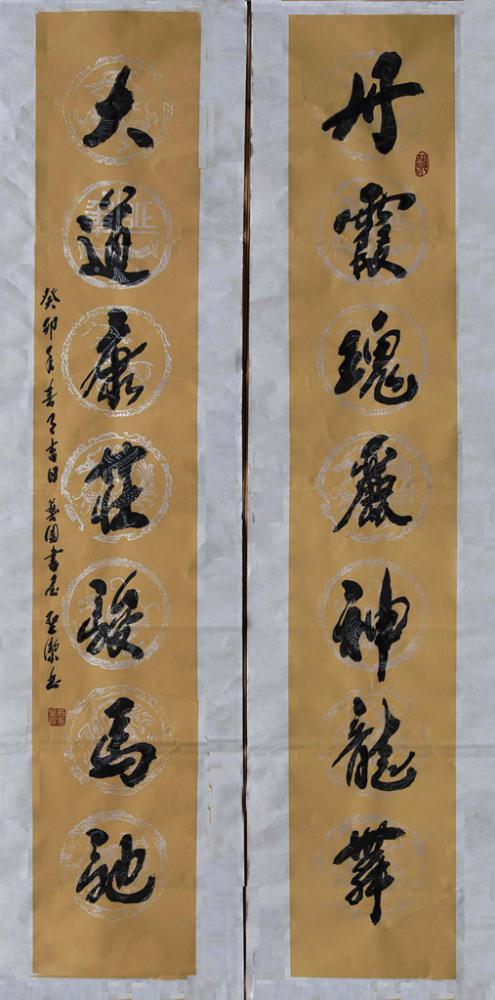 丹霞瑰麗神龍舞
大道康莊駿馬馳
癸卯年春月吉日 藝園書屋